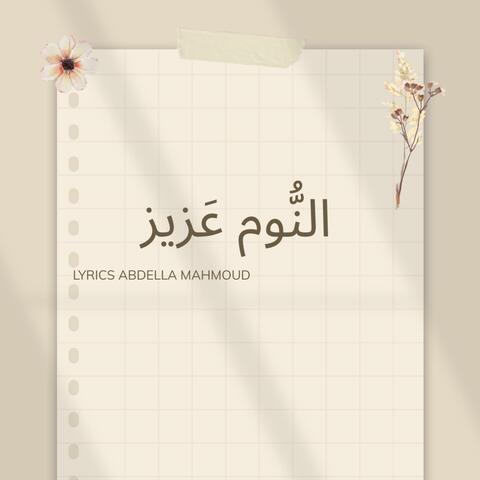 النُّوم عَزيز
LYRICS ABDELLA MAHMOUD